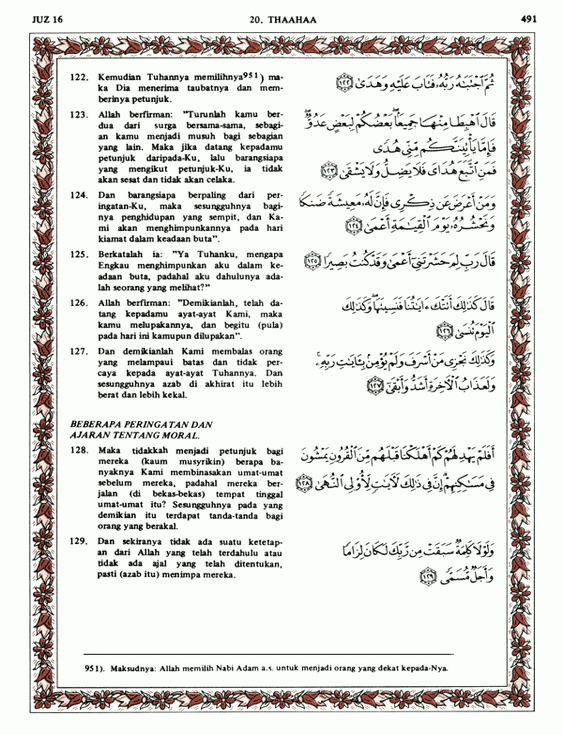 JUZ 16
20. THAAHAA
491
122. Kemudian Tuhannya memilihnya951) ma-
ka Dia menerima taubatnya dan mem-
berinya petunjuk.
ثُمَّ ٱجْتَبَـٰهُ رَبُّهُۥ فَتَابَ عَلَيْهِ وَهَدَىٰ ﴿١٢٢﴾
123. Allah berfirman: "Turunlah kamu ber-
dua dari surga bersama-sama, sebagi-
an kamu menjadi musuh bagi sebagian
yang lain. Maka jika datang kepadamu
petunjuk daripada-Ku, lalu barangsiapa
yang mengikut petunjuk-Ku, ia tidak
akan sesat dan tidak akan celaka.
قَالَ ٱهْبِطَا مِنْهَا جَمِيعًۢا بَعْضُكُمْ لِبَعْضٍ عَدُوٌّ
فَإِمَّا يَأْتِيَنَّكُم مِّنِّى هُدًى
فَمَنِ ٱتَّبَعَ هُدَاىَ فَلَا يَضِلُّ وَلَا يَشْقَىٰ ﴿١٢٣﴾
124. Dan barangsiapa berpaling dari per-
ingatan-Ku, maka sesungguhnya bagi-
nya penghidupan yang sempit, dan Ka-
mi akan menghimpunkannya pada hari
kiamat dalam keadaan buta".
وَمَنْ أَعْرَضَ عَن ذِكْرِى فَإِنَّ لَهُۥ مَعِيشَةً ضَنكًا
وَنَحْشُرُهُۥ يَوْمَ ٱلْقِيَـٰمَةِ أَعْمَىٰ ﴿١٢٤﴾
125. Berkatalah ia: "Ya Tuhanku, mengapa
Engkau menghimpunkan aku dalam ke-
adaan buta, padahal aku dahulunya ada-
lah seorang yang melihat?"
قَالَ رَبِّ لِمَ حَشَرْتَنِىٓ أَعْمَىٰ وَقَدْ كُنتُ بَصِيرًا ﴿١٢٥﴾
126. Allah berfirman: "Demikianlah, telah da-
tang kepadamu ayat-ayat Kami, maka
kamu melupakannya, dan begitu (pula)
pada hari ini kamupun dilupakan".
قَالَ كَذَٰلِكَ أَتَتْكَ ءَايَـٰتُنَا فَنَسِيتَهَا وَكَذَٰلِكَ
ٱلْيَوْمَ تُنسَىٰ ﴿١٢٦﴾
127. Dan demikianlah Kami membalas orang
yang melampaui batas dan tidak per-
caya kepada ayat-ayat Tuhannya. Dan
sesungguhnya azab di akhirat itu lebih
berat dan lebih kekal.
وَكَذَٰلِكَ نَجْزِى مَنْ أَسْرَفَ وَلَمْ يُؤْمِنۢ بِـَٔايَـٰتِ رَبِّهِۦ
وَلَعَذَابُ ٱلْـَٔاخِرَةِ أَشَدُّ وَأَبْقَىٰٓ ﴿١٢٧﴾
BEBERAPA PERINGATAN DAN
AJARAN TENTANG MORAL.
128. Maka tidakkah menjadi petunjuk bagi
mereka (kaum musyrikin) berapa ba-
nyaknya Kami membinasakan umat-umat
sebelum mereka, padahal mereka ber-
jalan (di bekas-bekas) tempat tinggal
umat-umat itu? Sesungguhnya pada yang
demikian itu terdapat tanda-tanda bagi
orang yang berakal.
أَفَلَمْ يَهْدِ لَهُمْ كَمْ أَهْلَكْنَا قَبْلَهُم مِّنَ ٱلْقُرُونِ يَمْشُونَ
فِى مَسَـٰكِنِهِمْ إِنَّ فِى ذَٰلِكَ لَـَٔايَـٰتٍ لِّأُو۟لِى ٱلنُّهَىٰ ﴿١٢٨﴾
129. Dan sekiranya tidak ada suatu ketetap-
an dari Allah yang telah terdahulu atau
tidak ada ajal yang telah ditentukan,
pasti (azab itu) menimpa mereka.
وَلَوْلَا كَلِمَةٌ سَبَقَتْ مِن رَّبِّكَ لَكَانَ لِزَامًا
وَأَجَلٌ مُّسَمًّى ﴿١٢٩﴾
951). Maksudnya: Allah memilih Nabi Adam a.s. untuk menjadi orang yang dekat kepada-Nya.